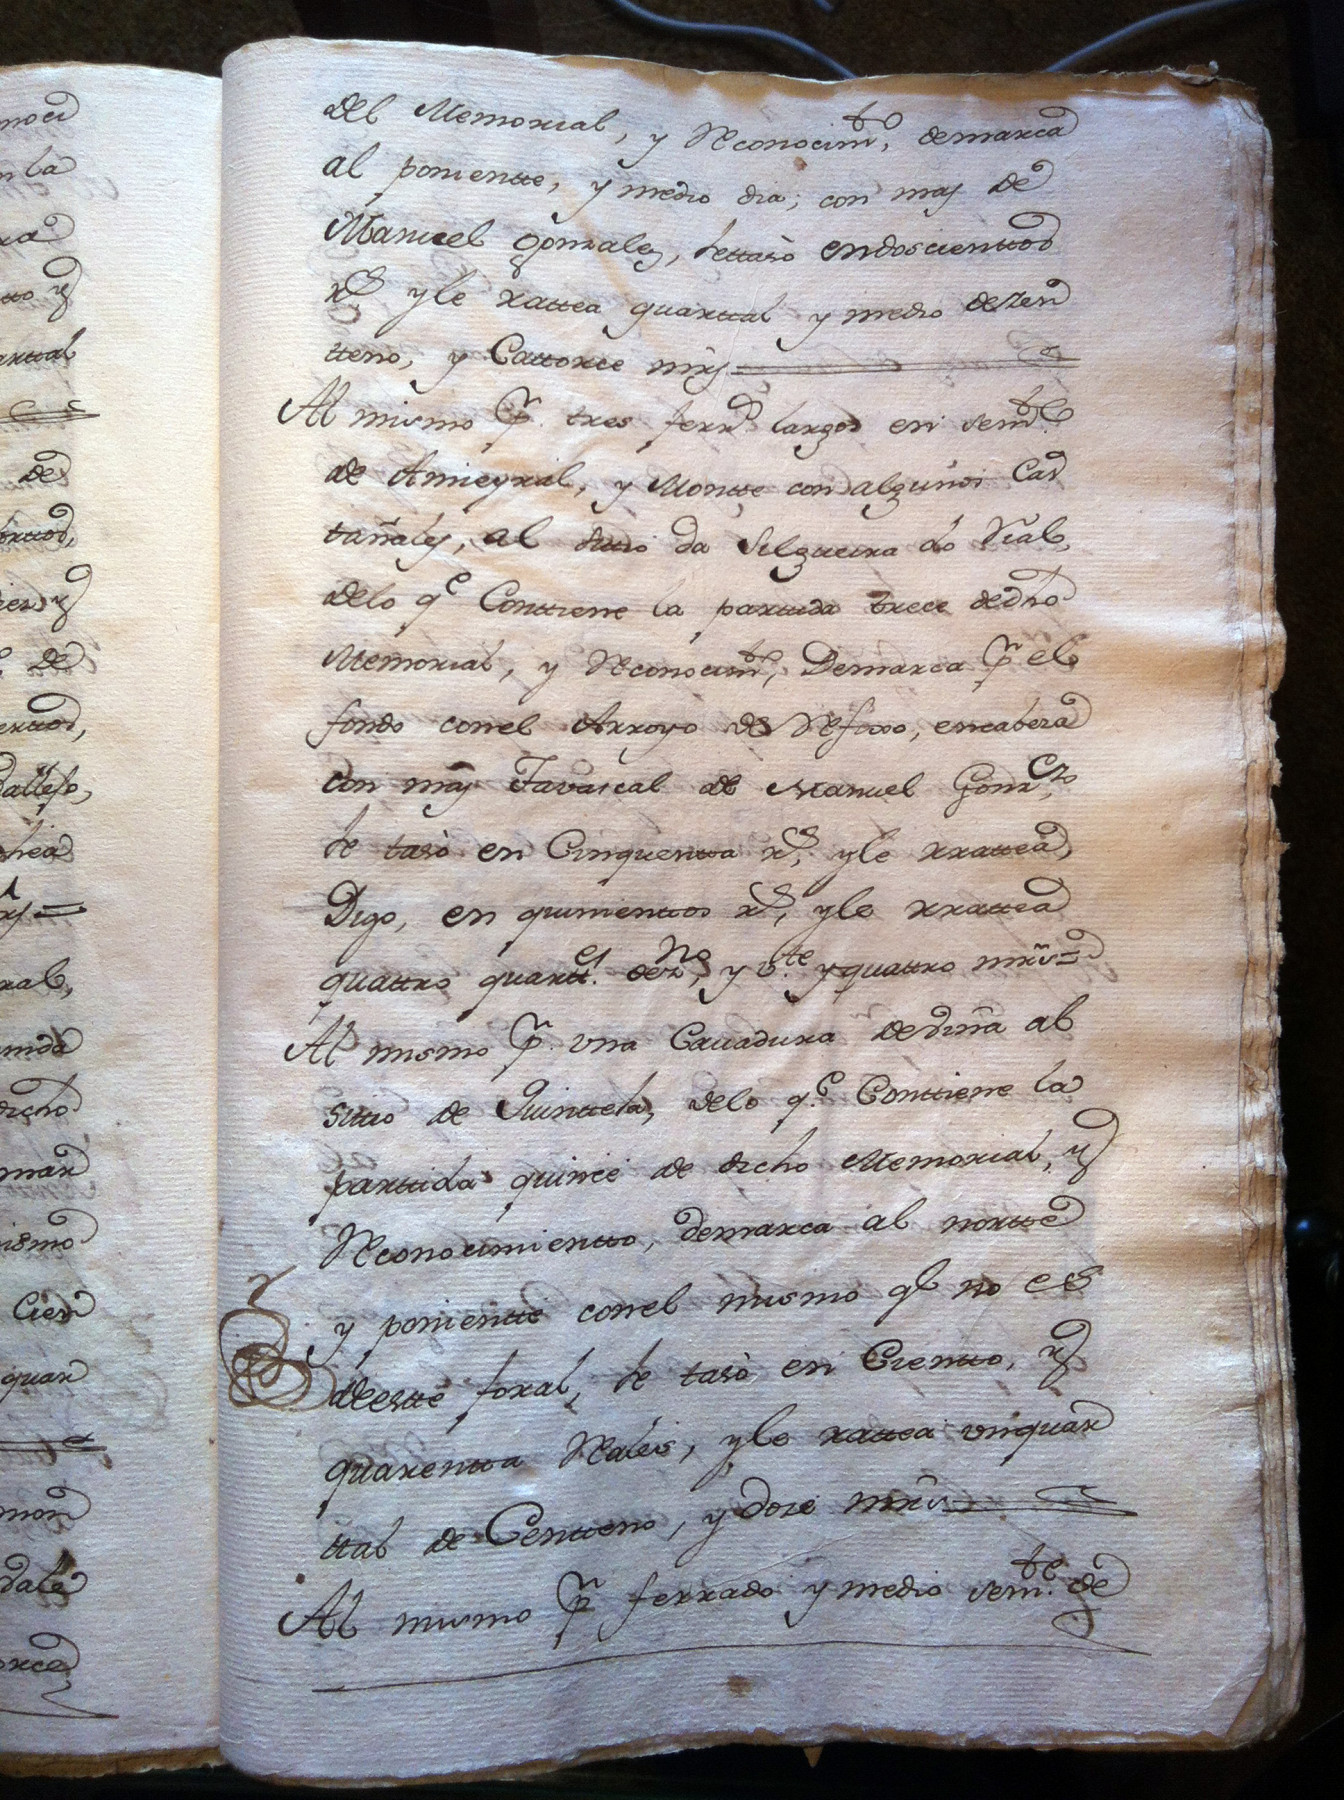 del Memorial, y Reconocim.to, demarca
al ponientte, y medio dia; con mas de
Manuel Gonzales, settasò en doscienttos
r.s y le rattea quarttal y medio de zen
tteno, y Cattorce mrs
Al mismo p.r tres ferr.s largos en sem.te
de Amieyral, y Montte con algunos Cas
tañales, al sittio da Silgueira do Rial,
de lo q.e Conttiene la parttida trece de dho
Memorial, y Reconocim.to, Demarca p.r el
fondo con el Arroyo de Refixo, en cabeza
con mas Tavascal de Manuel Gonz.es,
se tasò en Cinquentta r.s, y le rrattea,
Digo, en quinienttos r.s, y le rrattea
quattro quartt.es de z.no, y v.te y quattro mrs
Al mismo p.r vna Cavadura de viña al
sittio de Quinttela, de lo q.e Conttiene la
parttida quince de dicho Memorial, y
Reconocimientto, demarca al nortte
y ponientte con el mismo q.e no es
de estte foral, se tasò en Cientto, y
quarentta Reales, y le rattea un quar
ttal de Centteno, y doze mrs
Al mismo p.r ferrado y medio sem.te de
noci
n la
ra
tto y
arttal
de
y
de
dicho
mar
mismo
Cien
quar
mon
orce